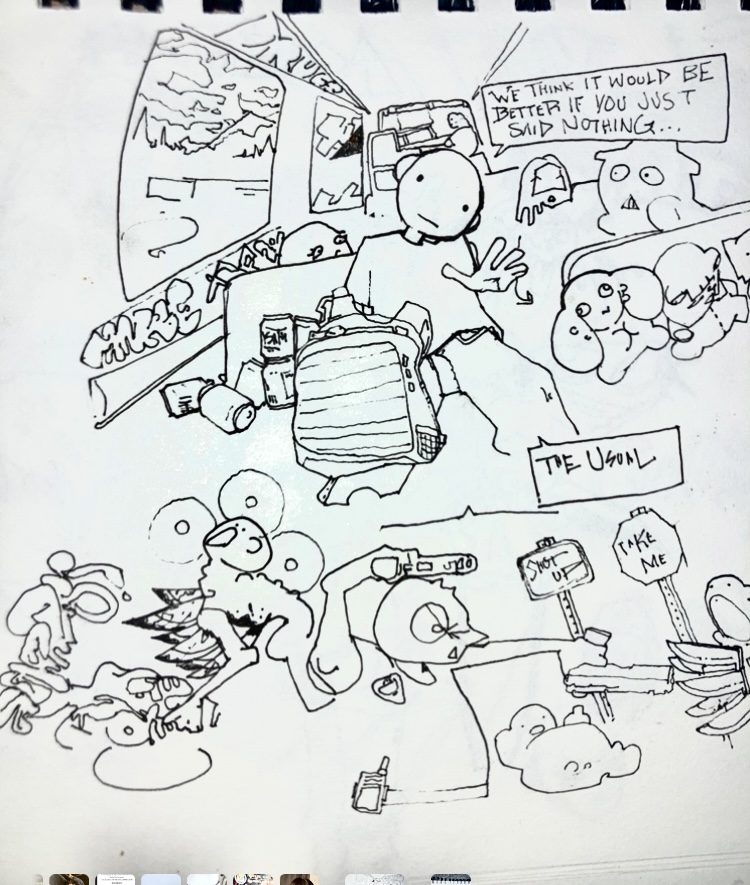 WE THINK IT WOULD BE
BETTER IF YOU JUST
SAID NOTHING...
THE USUAL
SHUT
UP
TAKE
ME